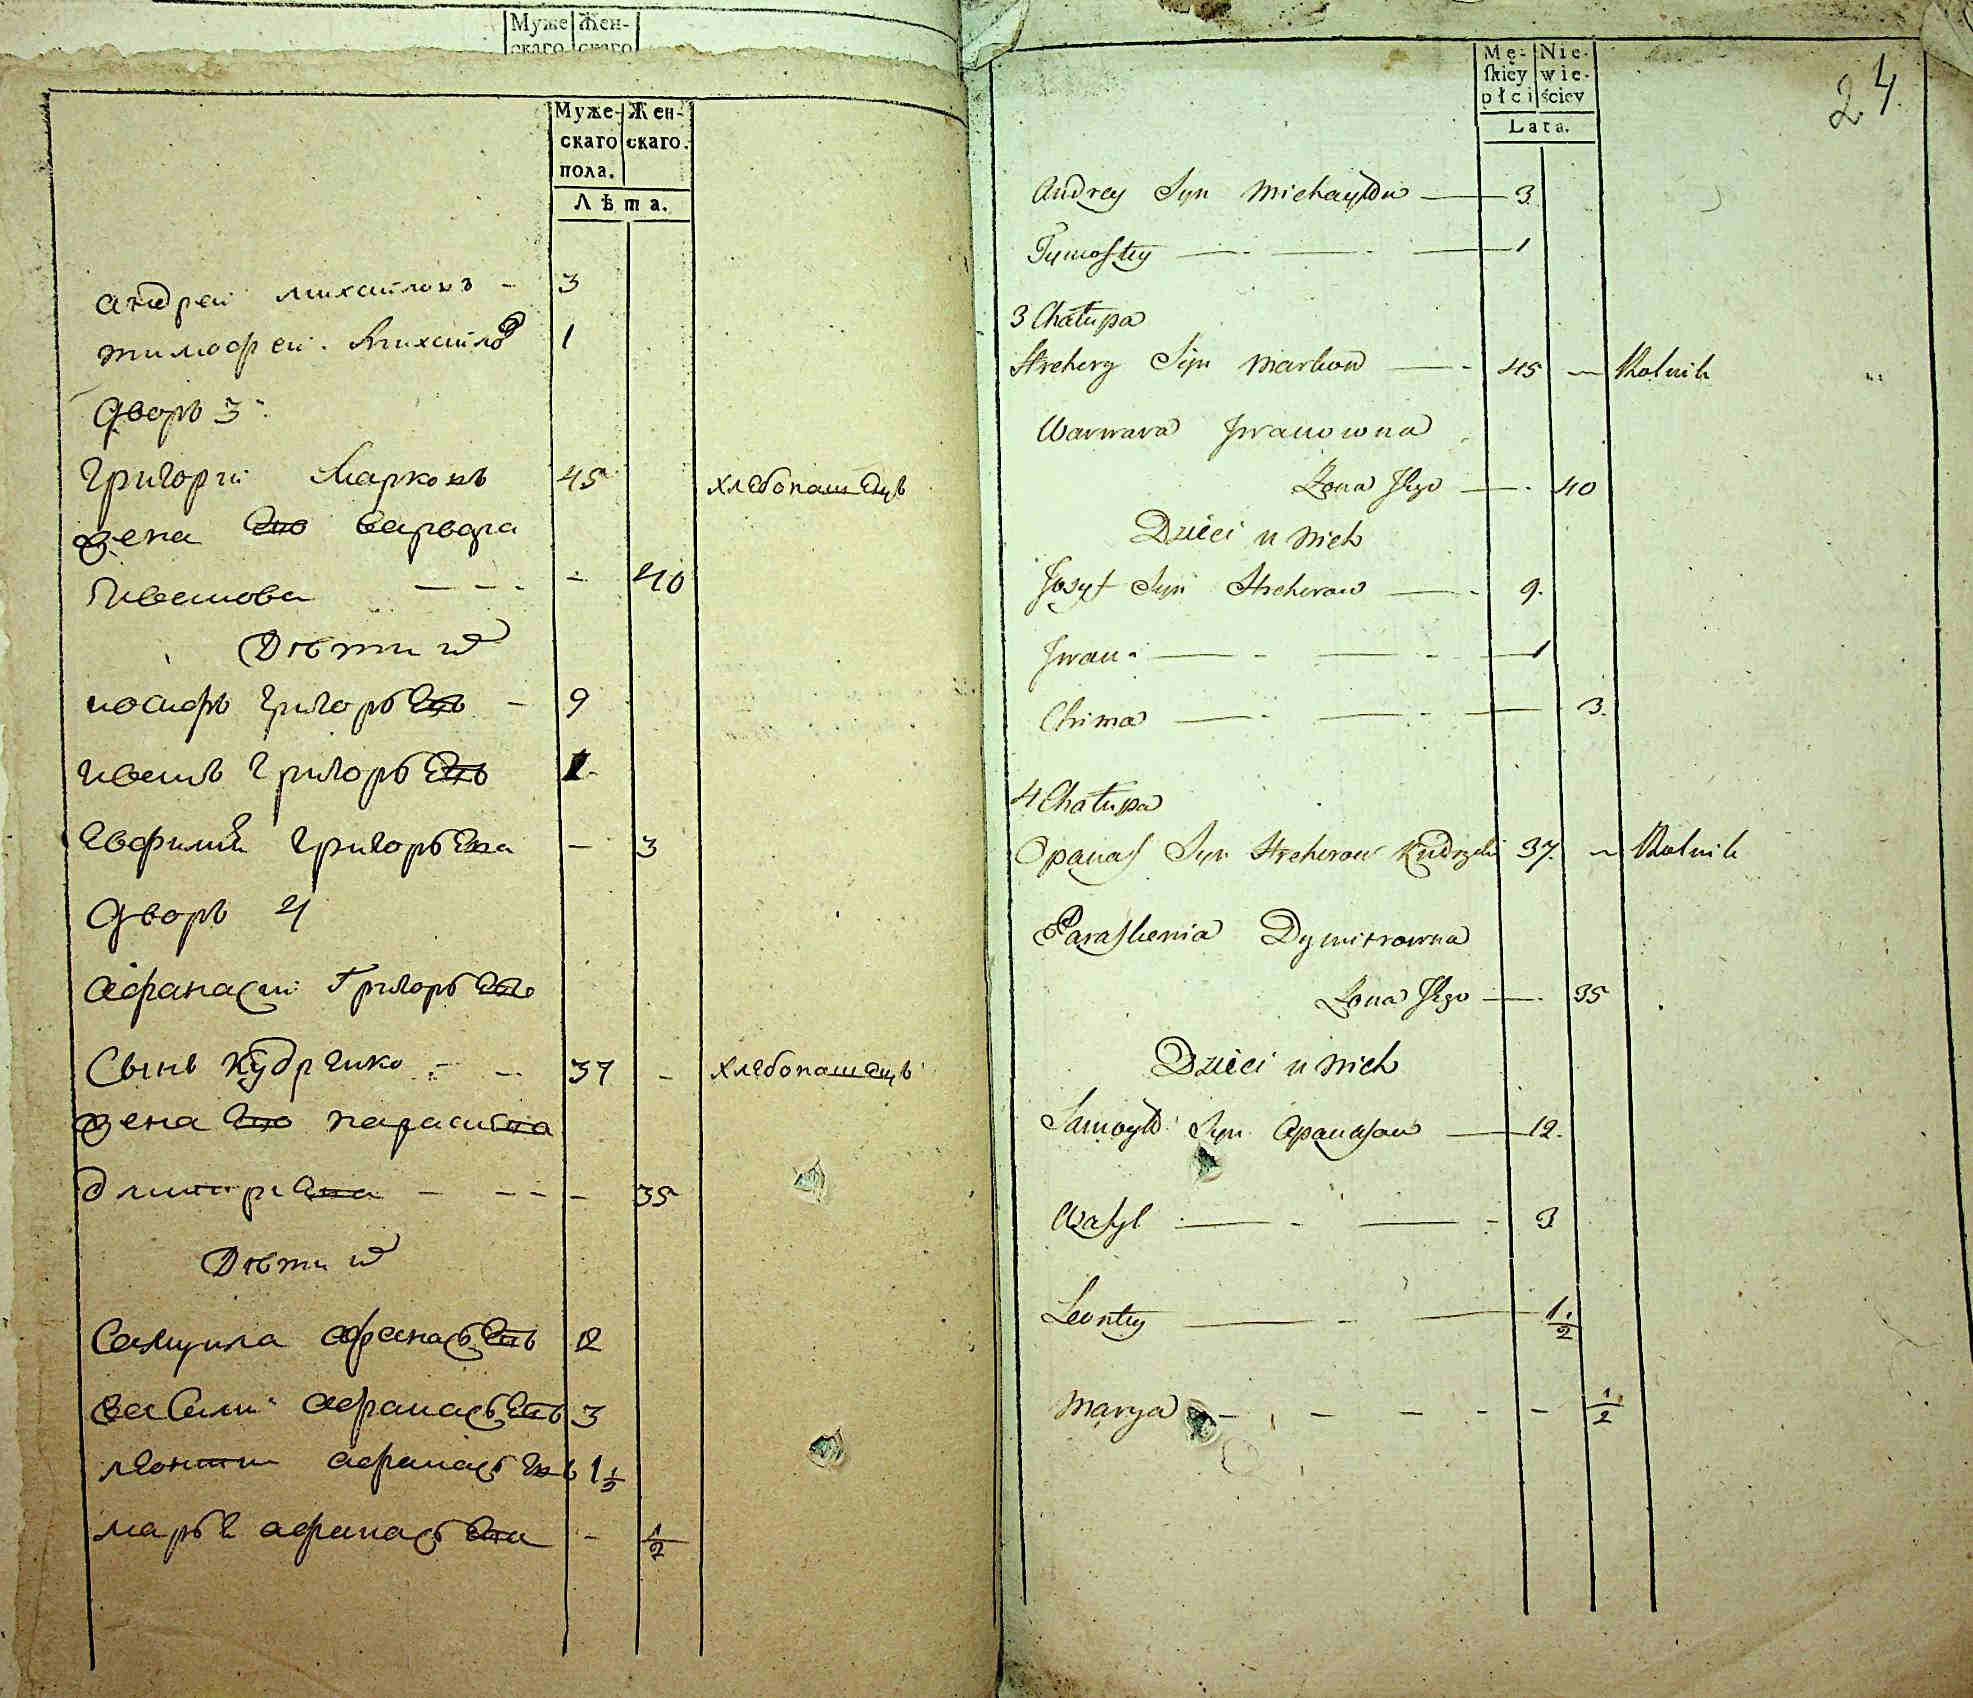 Муже Жен-
скаго скаго
Муже- Жен-
скаго скаго.
пола.
Лѣта.
андреи михаиловъ - 3
тимофеи михаило 1
дворъ 3
григории Марковъ 45 хлебопашецъ
жена его варвара
Иванова - - - - 40
Дѣти их
иосифъ григорьевъ - 9
иванъ григорьевъ 1
евфимия григорьева - 3
дворъ 4
афанасии Григорьевъ
Сынъ кудр 37 - хлебопашецъ
жена его параскева
дмитриева - - - - 35
Дѣти их
Самуила афанасьевъ 12
василии афанасьевъ 3
леонтии афанасьевъ 1 1/2
марья афанасьева - 1/2
24
Mę- Nie-
skiey wie-
płci ściey
Lata.
Andrey Syn Michayłow 3
Tymofiey 1
3 Chałupa
Hrehory Syn Markow 45 Rolnik
Warwara Jwanowna
Zona Jego 40
Dzieci u nich
Josyf Syn Hrehorow 9.
Jwan 1
Chima 3.
4 Chałupa
Opanas Syn Hrehorow 37. Rolnik
Paraskewia Dymitrowna
Zona Jego 35
Dzieci u nich
Samoyło Syn Opanasow 12.
Wasyl 3
Leonty 1 1/2
Marya - - - - - 1/2